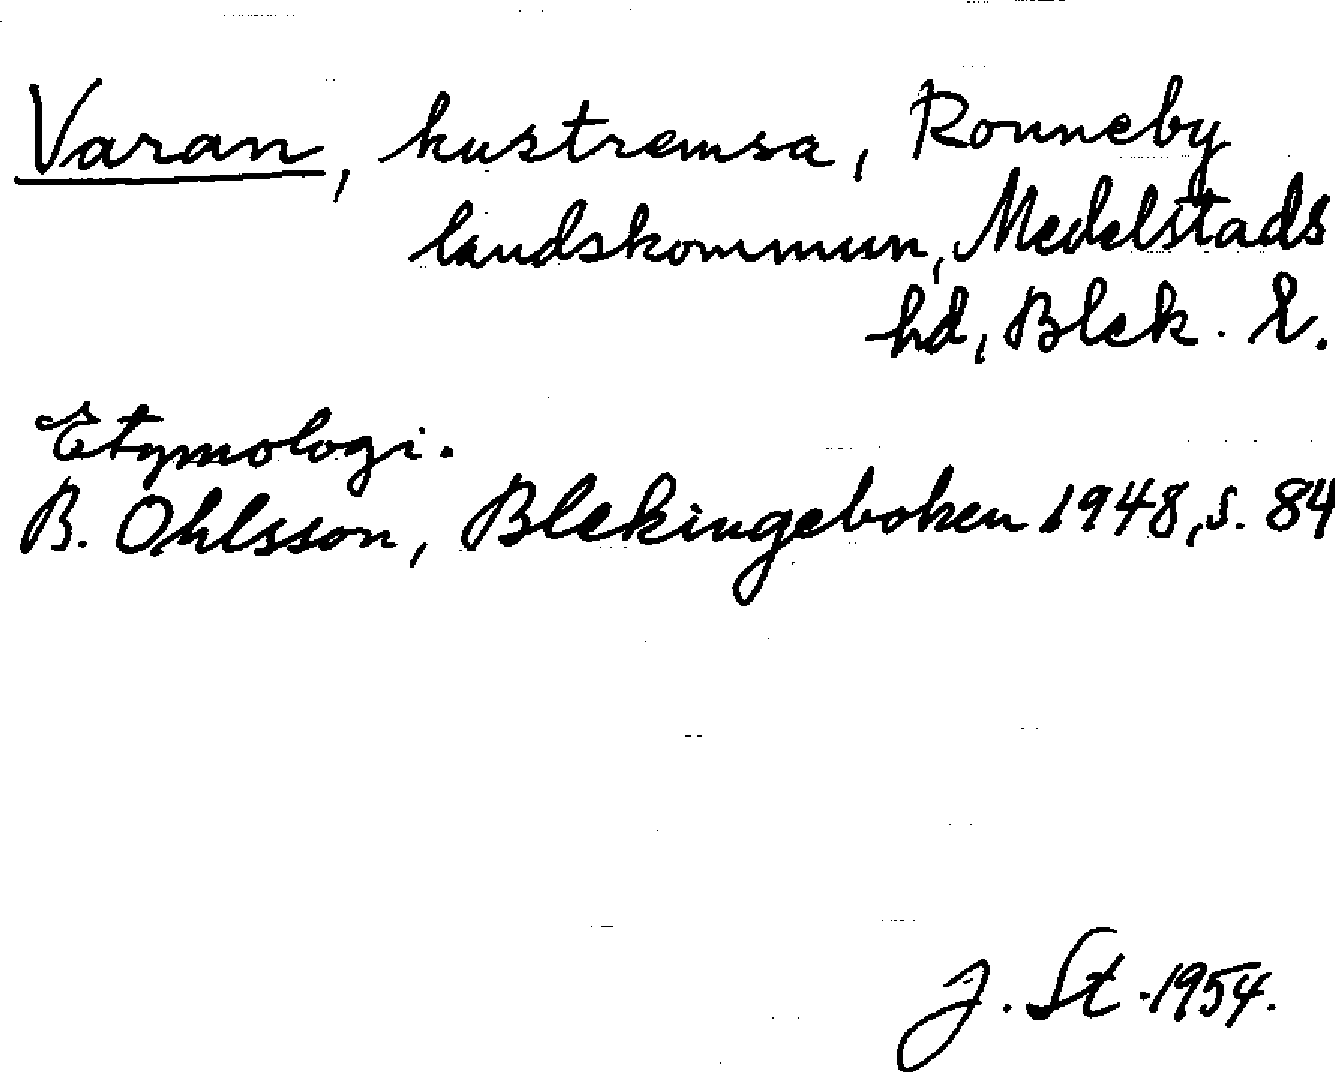 Varan, kustremsa, Ronneby
landskommun, Medelstads
hd, Blek. l.
Etymologi.
B. Ohlsson, Blekingeboken 1948, s. 84
J. St. 1954.